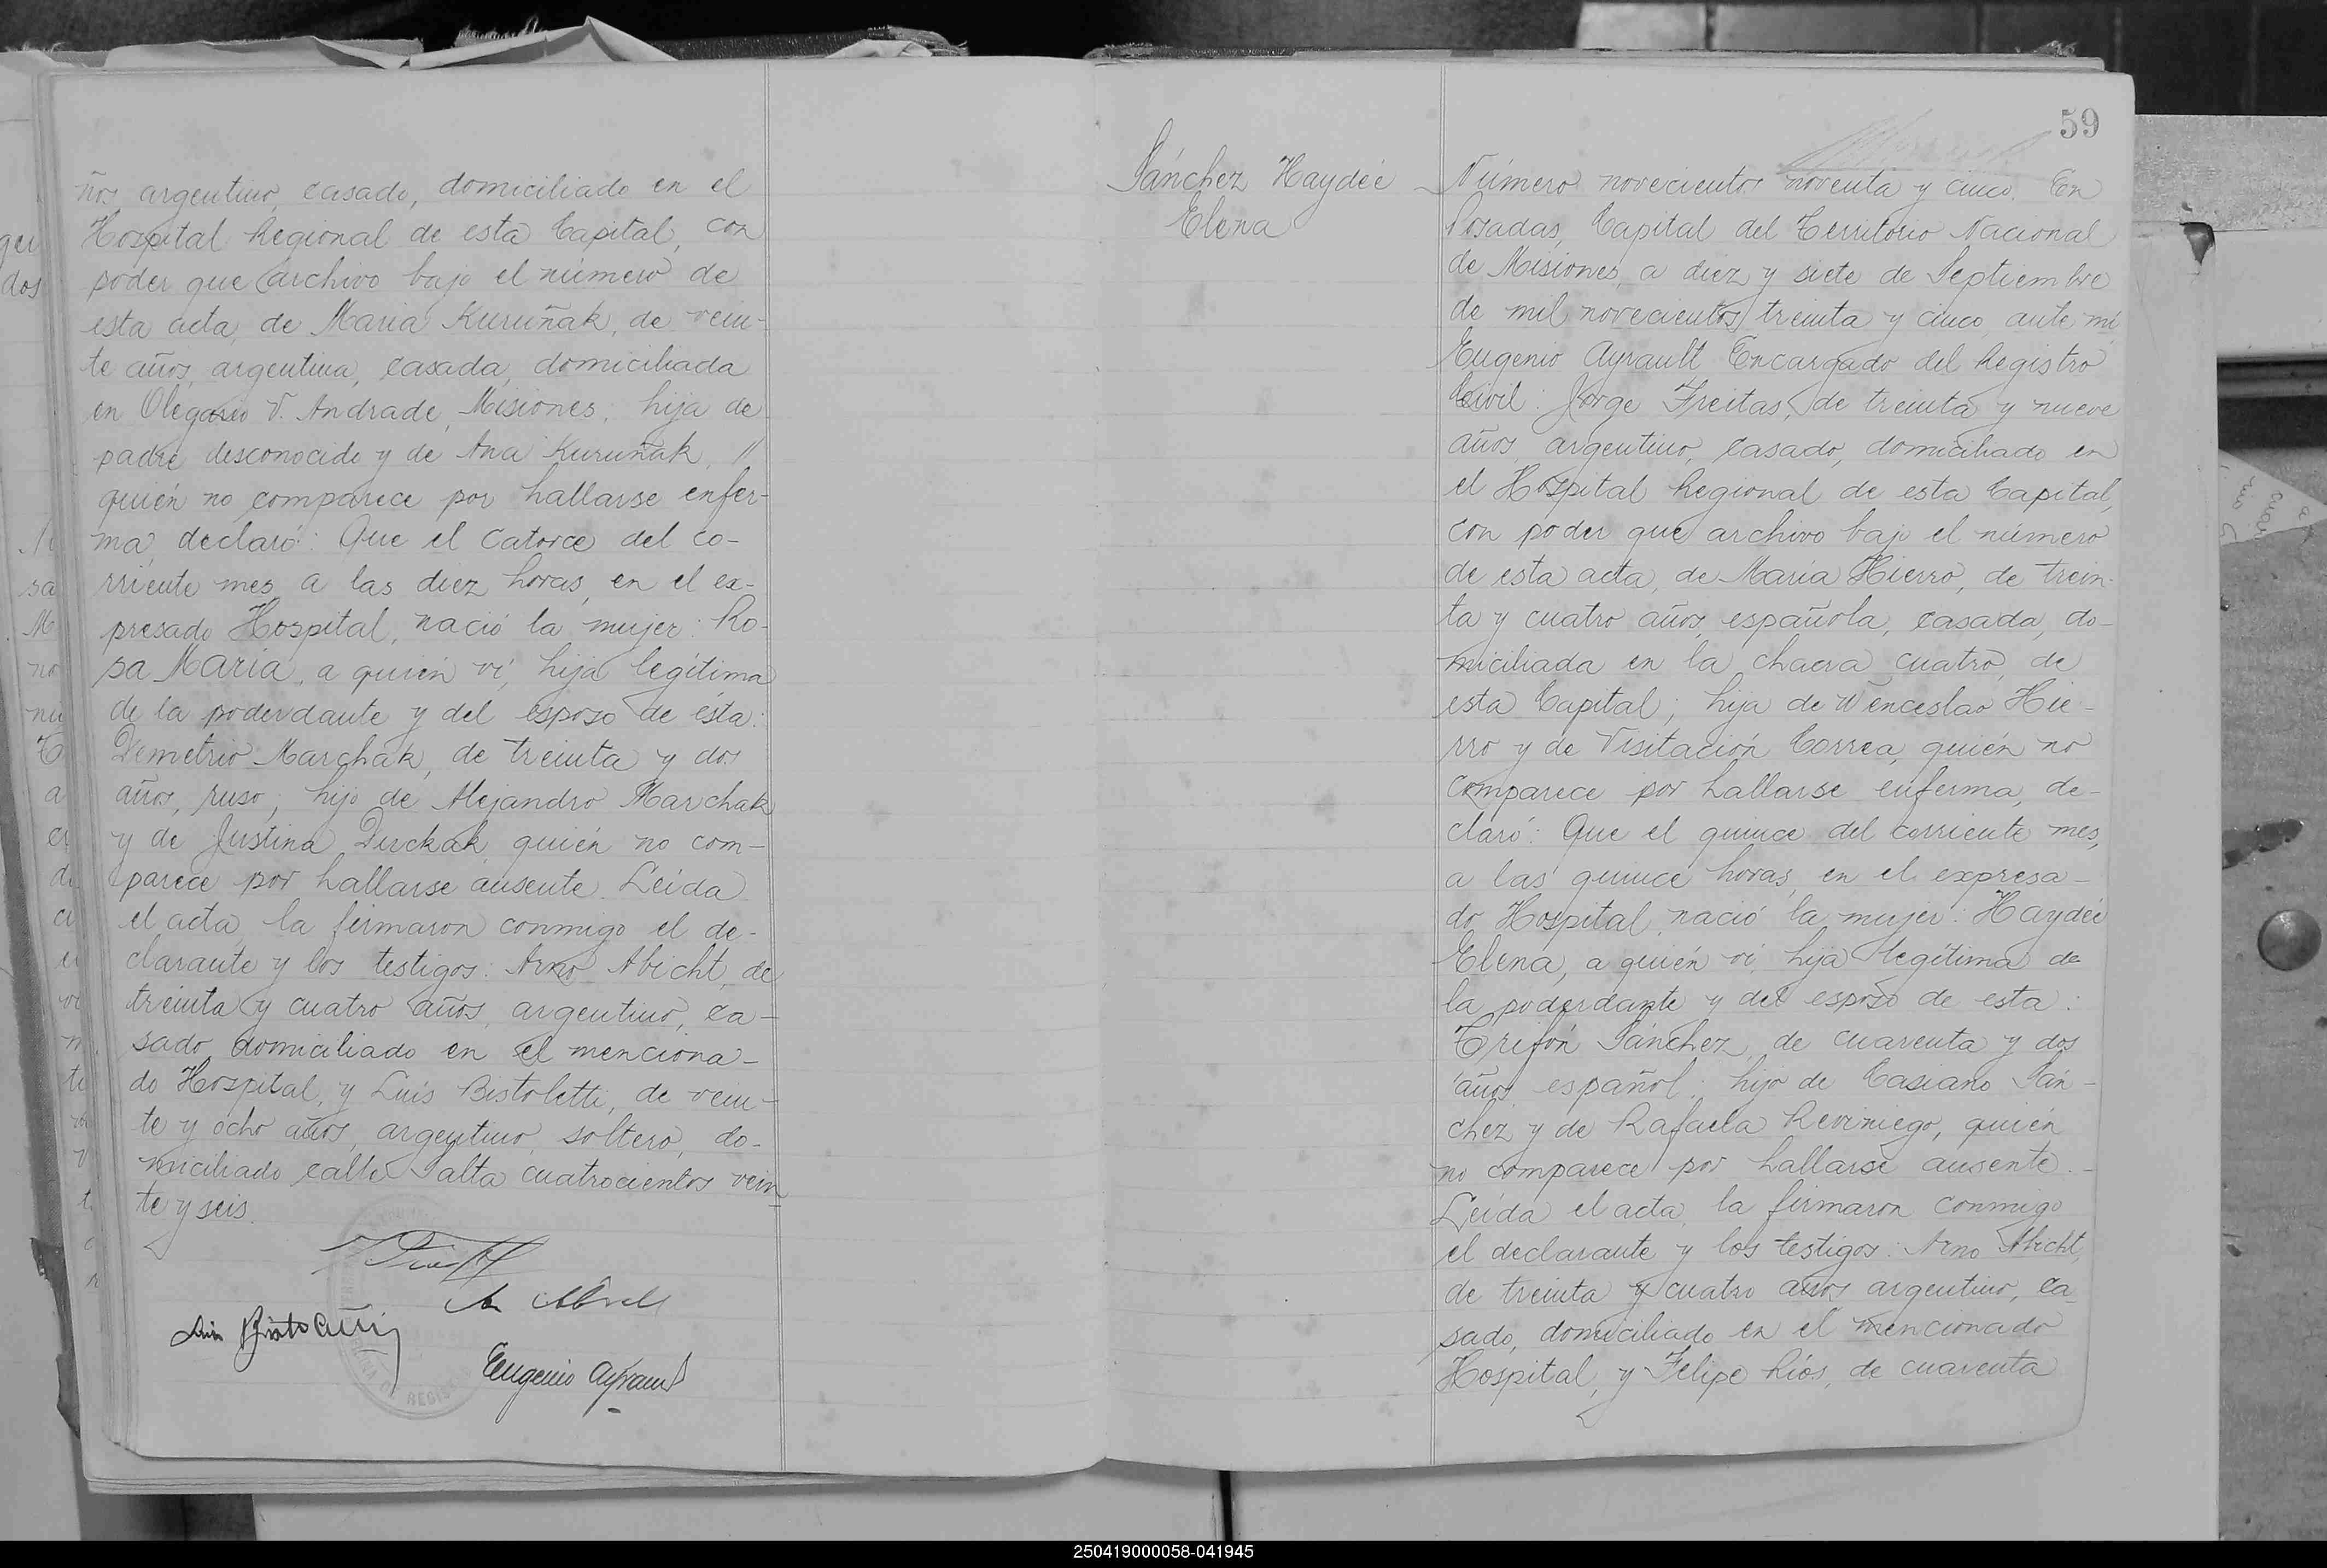 ños, argentino, casado, domiciliado en el
Hospital Regional de esta Capital, con
poder que archivo bajo el número de
esta acta, de María Kuruñak, de vein-
te años, argentina, casada, domiciliada
en Olegario V. Andrade, Misiones, hija de
padre desconocido y de Ana Kuruñak, //
quién no comparece por hallarse enfer-
ma, declaró: Que el catorce del co-
rriente mes, a las diez horas, en el ex-
presado Hospital, nació la mujer: Ro-
sa María, a quién vi, hija legítima
de la poderdante y del esposo de ésta:
Demetrio Marchak, de treinta y dos
años, ruso; hijo de Alejandro Marchak
y de Justina Durkak, quién no com-
parece por hallarse ausente. Leída
el acta, la firmaron conmigo el de-
clarante y los testigos: Arno Abicht, de
treinta y cuatro años, argentino, ca-
sado, domiciliado en el menciona-
do Hospital, y Luis Bistoletti, de vein-
te y ocho años, argentino, soltero, do-
miciliado calle Salta cuatrocientos vein
te y seis.
Eugenio Ayrault
59
Sánchez Haydée
Elena
Número novecientos noventa y cinco. En
Posadas, Capital del Territorio Nacional
de Misiones, a diez y siete de Septiembre
de mil novecientos treinta y cinco, ante mí,
Eugenio Ayrault Encargado del Registro
Civil: Jorge Freitas, de treinta y nueve
años, argentino, casado, domiciliado en
el Hospital Regional de esta Capital,
con poder que archivo bajo el número
de esta acta, de María Hierro, de trein-
ta y cuatro años, española, casada, do-
miciliada en la chacra cuatro, de
esta Capital; hija de Wenceslao Hie-
rro y de Visitación Correa, quién no
comparece por hallarse enferma, de-
claró: Que el quince del corriente mes,
a las quince horas, en el expresa-
do Hospital, nació la mujer: Haydée
Elena, a quién vi, hija legítima de
la poderdante y del esposo de esta:
Trifón Sánchez, de cuarenta y dos
años, español; hijo de Casiano Sán-
chez y de Rafaela Reviriego, quién
no comparece por hallarse ausente.-
Leída el acta, la firmaron conmigo
el declarante y los testigos: Arno Abicht,
de treinta y cuatro años, argentino, ca-
sado, domiciliado en el mencionado
Hospital, y Felipe Ríos, de cuarenta
250419000058-041945